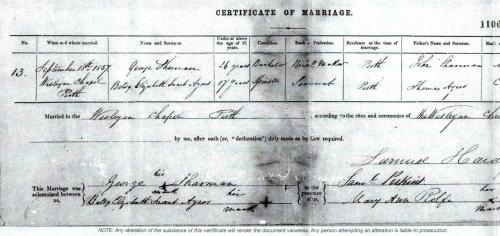 CERTIFICATE OF MARRIAGE.
1106
No. When and where married. Name and Surname. Under or above the age of 21 years. Condition Rank or Profession. Residence at the time of marriage. Father's Name and Surname.
13. September 18th 1857 Wesleyan Chapel Perth
George Sharman 26 years Bachelor Perth John Sharman
Betsy Elizabeth Ayers 17 years Spinster Servant Perth Thomas Ayers
Married in the Wesleyan Chapel Perth according to the rites and ceremonies of the Wesleyan
by me, after oath (or, "declaration") duly made as by Law required.
Samuel
This Marriage was solemnized between us,
George his mark Sharman
Betsy Elizabeth Ayers her mark
in the presence of us,
Saml. Perkins
Mary Ann Rolfe
her mark
NOTE: Any alteration of the substance of this certificate will render the document valueless. Any person attempting an alteration is liable to prosecution.